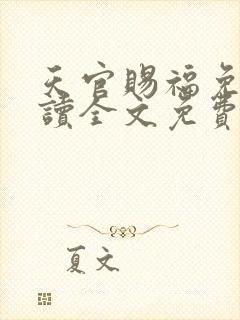 天官賜福免
讀全文免費
夏文